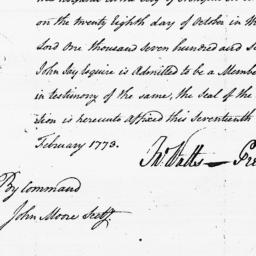 on the twenty eighth day of October in th
Lord One thousand seven hundred and s
John Jay Esquire is Admitted to be a Member
in testimony of the same, the Seal of the
tion is hereunto affixed this seventeenth
February 1773.
Jno. Watts — Pre
By Command
John Moore Secty.